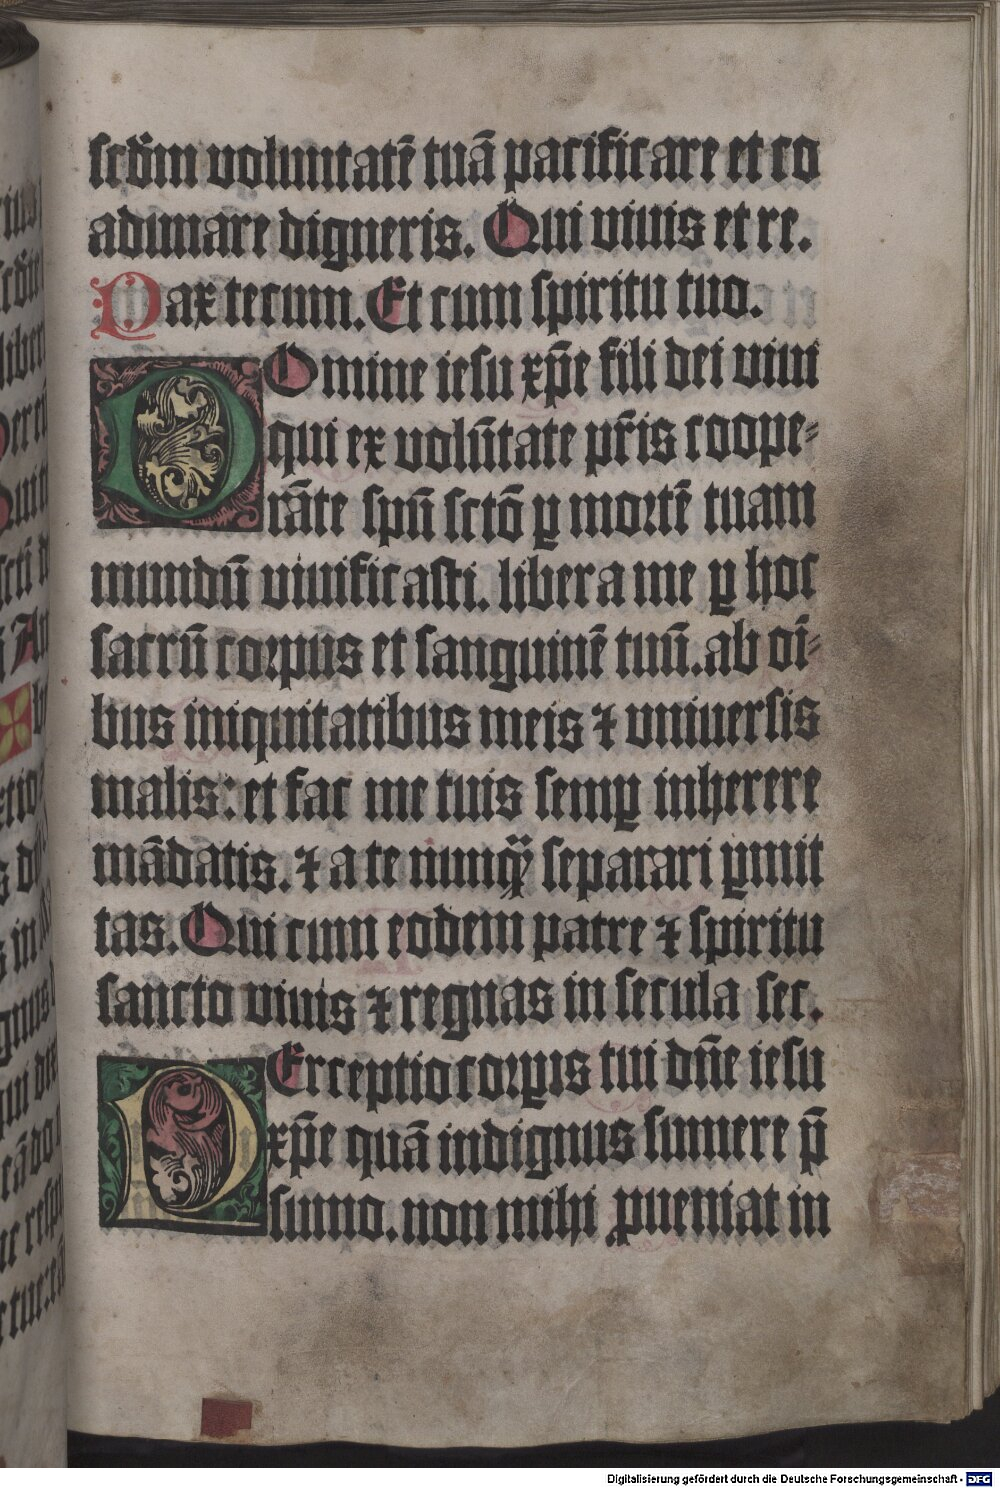 scd̄m voluntatē tuā pacificare et co
adunare digneris. Qui viuis et re.
Pax tecum. Et cum spiritu tuo.
DOmine iesu xp̄e fili dei viui
qui ex volūtate pr̄is coope-
rāte spū sctō ꝑ mortē tuam
mundū viuificasti. libera me ꝑ hoc
sacrū corpus et sanguinē tuū. ab oī-
bus iniquitatibus meis ⁊ vniuersis
malis: et fac me tuis semꝑ inherere
mādatis. ⁊ a te nunqꝫ separari ꝑmit
tas. Qui cum eodem patre ⁊ spiritu
sancto viuis ⁊ regnas in secula sec.
PErceptio corꝑis tui dn̄e iesu
xp̄e quā indignus sumere p̄
sumo. non mihi ꝓueniat in
Digitalisierung gefördert durch die Deutsche Forschungsgemeinschaft - DFG